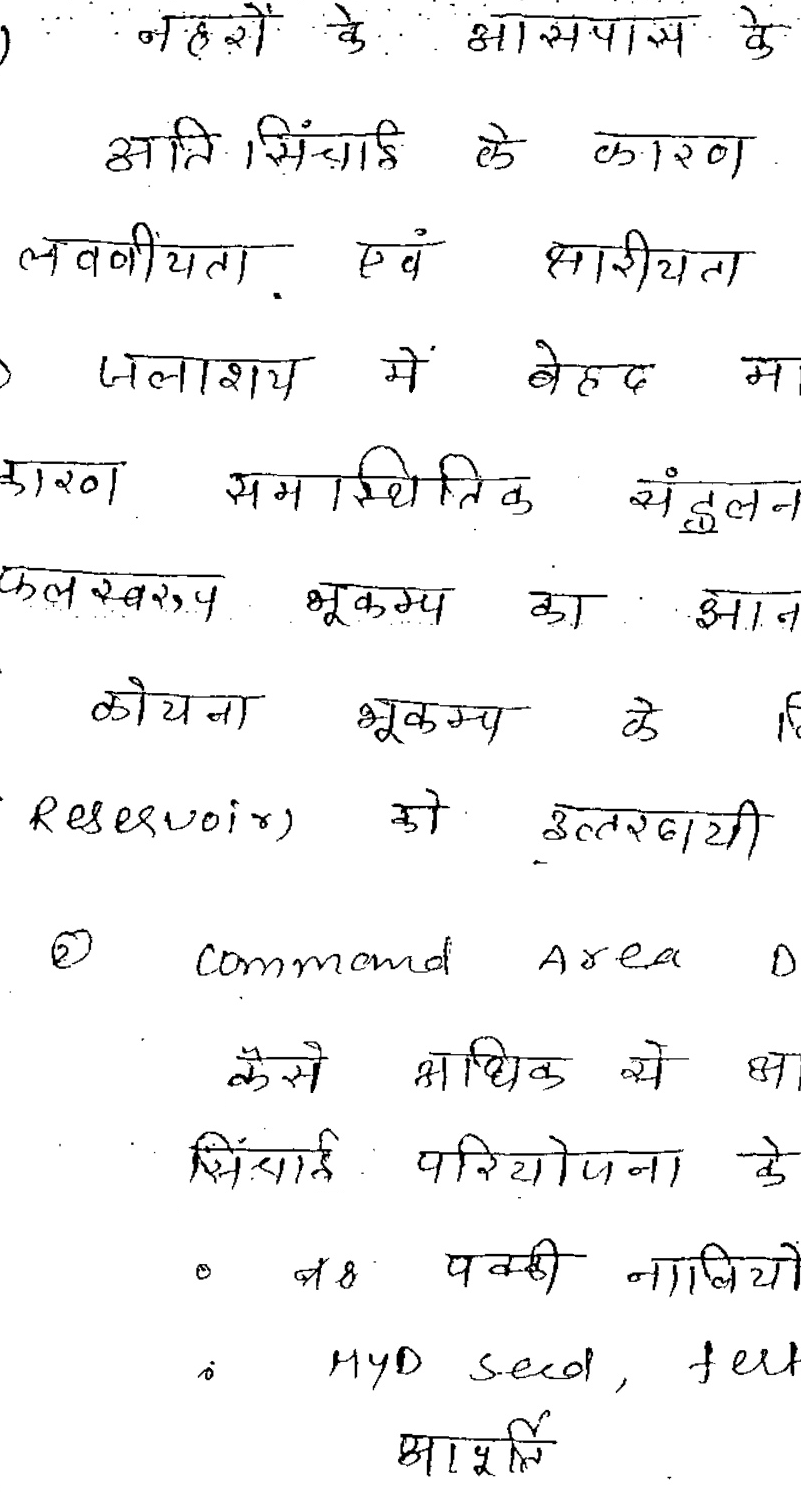 ) नहरों के आसपास के
अति सिंचाई के कारण
लवणीयता एवं क्षारीयता
जलाशय में बेहद मा
कारण समस्थितिक संतुलन
फलस्वरूप भूकम्प का आन
कोयना भूकम्प के
Reservoir) को उत्तरदायी
② Command Area D
कैसे अधिक से अ
सिंचाई परियोजना के
० पक्की नालियों
० HYD seed, fert
आपूर्ति